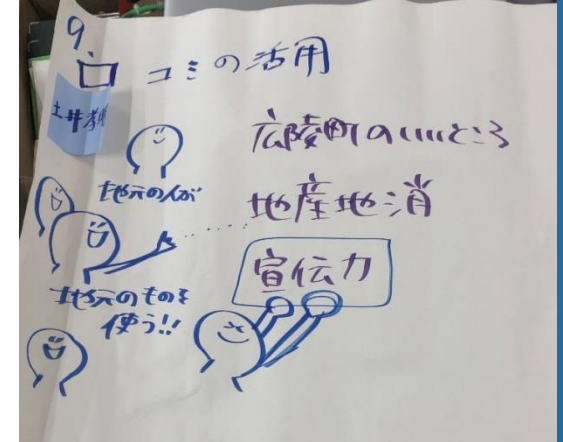 9.
口コミの活用
土井孝
広陵町のいいところ
地元の人が
地産地消
宣伝力
地元のものを
使う!!